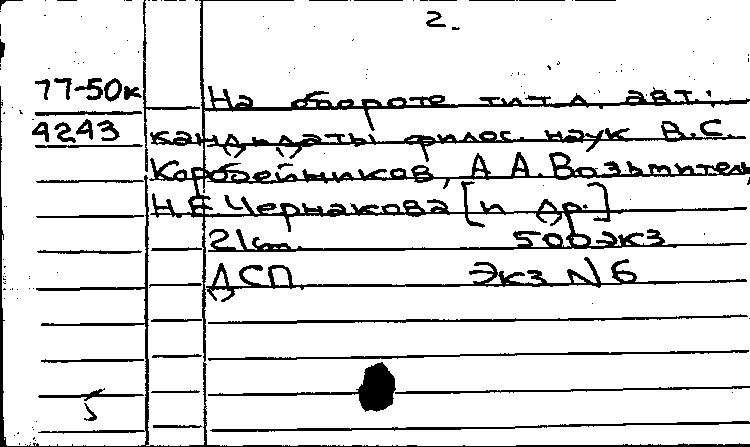 2.
77-50к На обороте тит.л. авт.:
4243 кандидаты филос. наук В.С.
Коробейников, А А. Возьмитель,
Н.Е Чернакова [и др.]
21 см. 500 экз
ДСП. Экз N 6
5